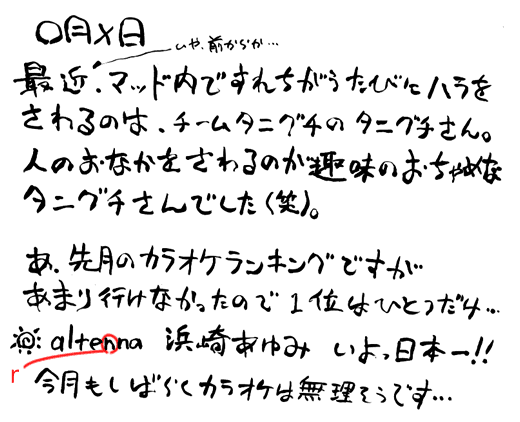 〇月×日
いや、前からか…
最近、マッド内ですれちがうたびにハラを
さわるのは、チームタニグチのタニグチさん。
人のおなかをさわるのが趣味のおちゃめな
タニグチさんでした(笑)。
あ、先月のカラオケランキングですが
あまり行けなかったので1位はひとつだけ…
㊗:altenna 浜崎あゆみ いよっ日本一!!
r
今月もしばらくカラオケは無理そうです…